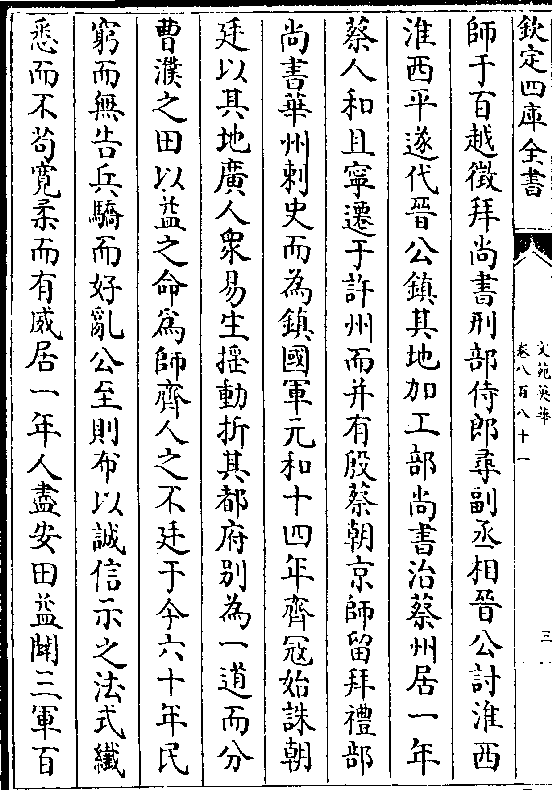 欽定四庫全書
文苑英華
卷八百八十一
三
師于百越徵拜尚書刑部侍郎尋副丞相晉公討淮西
淮西平遂代晉公鎮其地加工部尚書治蔡州居一年
蔡人和且寧遷于許州而并有殷蔡朝京師留拜禮部
尚書華州刺史而為鎮國軍元和十四年齊冦始誅朝
廷以其地廣人衆易生揺動折其都府别為一道而分
曹濮之田以益之命爲師齊人之不廷于今六十年民
窮而無告兵驕而好亂公至則布以誠信示之法式纎
悉而不苟寛柔而有威居一年人盡安田益闢三軍百